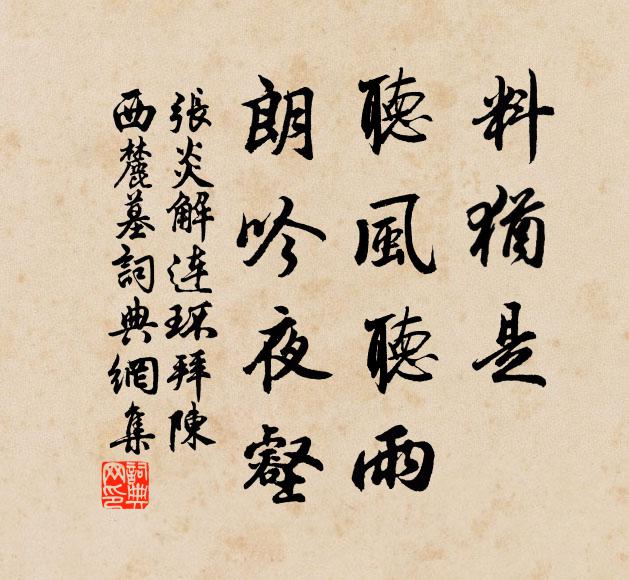 料猶是
聽風聽雨
朗吟夜壑
張炎解連環拜陳
西麓墓詞典網集
詞典
网印